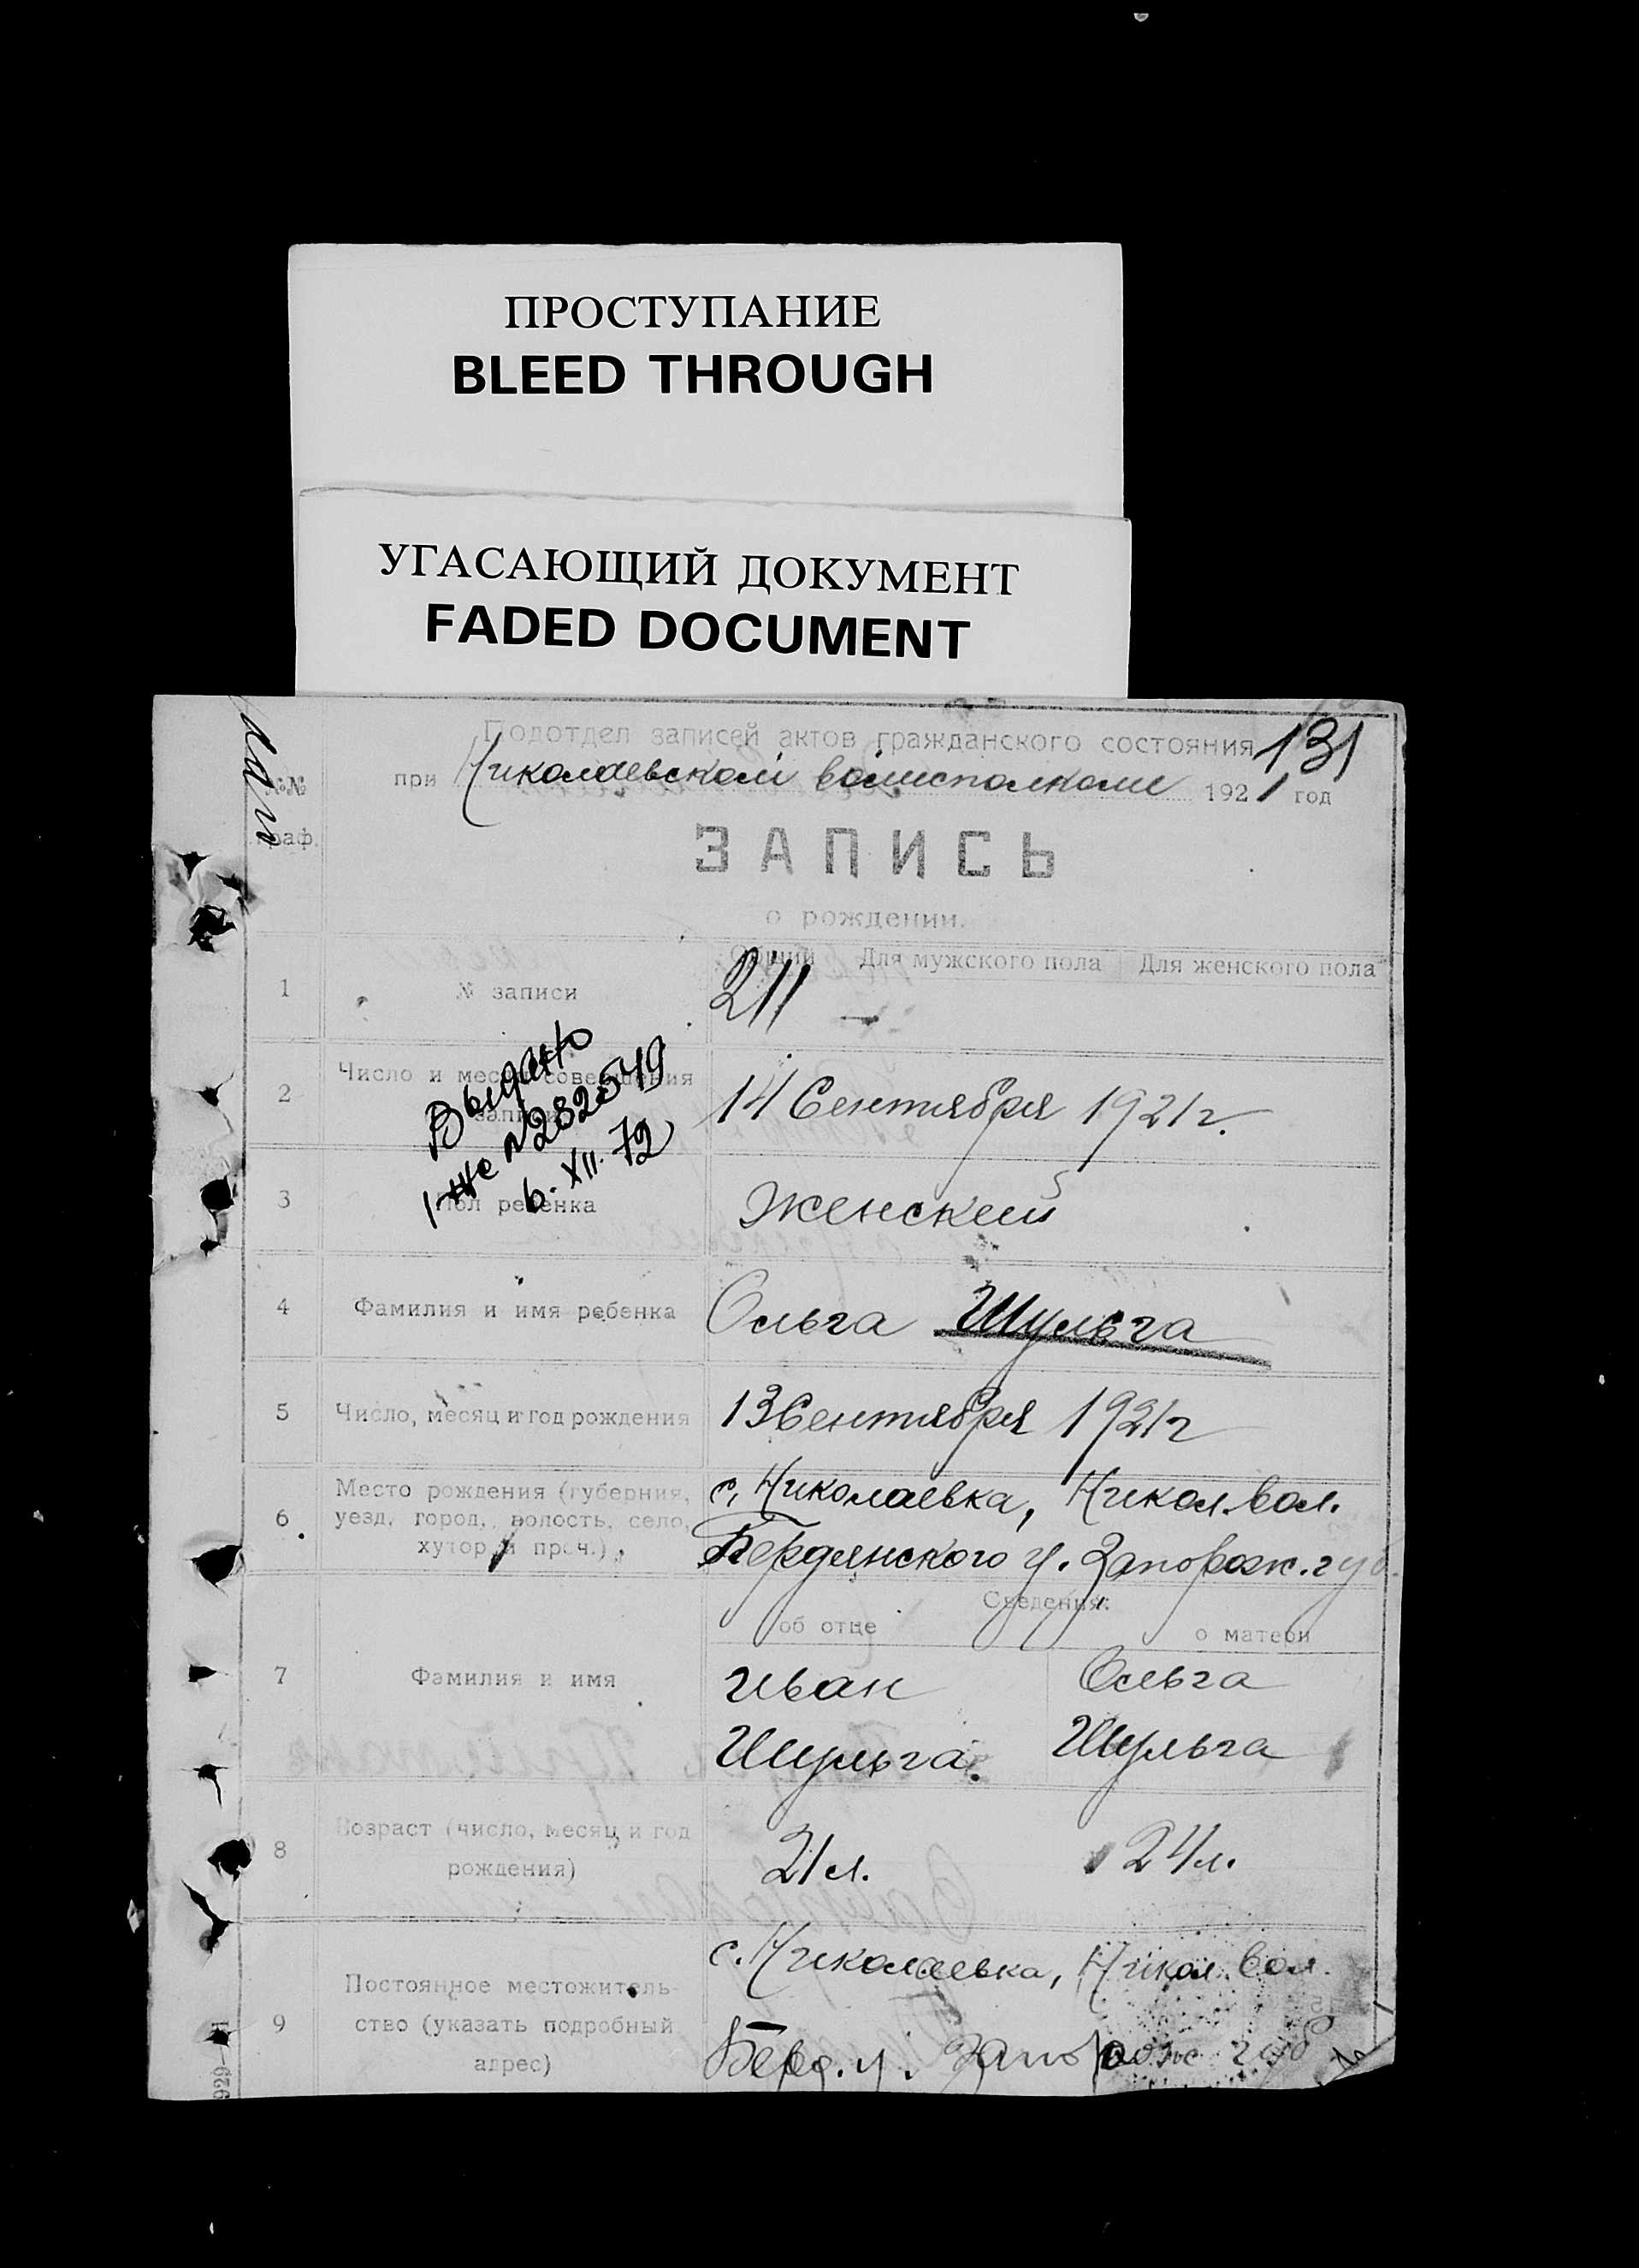 ПРОСТУПАНИЕ
BLEED THROUGH
УГАСАЮЩИЙ ДОКУМЕНТ
FADED DOCUMENT
Подотдел записей актов гражданского состояния 131
при Николаевском волисполкоме 1921 год
№№
граф.
ЗАПИСЬ
о рождении.
Общий Для мужского пола Для женского пола
1 № записи 211 —
2 Число и месяц совершения записи 14 Сентября 1921 г.
Выдано
№ 282549
6. XII. 72
3 Пол ребенка Женский
4 Фамилия и имя ребенка Ольга Шульга
5 Число, месяц и год рождения 13 Сентября 1921 г
6 Место рождения (губерния, с. Николаевка, Никол. вол.
уезд, город, волость, село, Бердянского у. Запорож. губ.
хутор и проч.)
Сведения:
об отце о матери
7 Фамилия и имя Иван Ольга
Шульга. Шульга
8 Возраст (число, месяц и год 21 л. 24 л.
рождения)
с. Николаевка, Никол. вол.
9 Постоянное местожитель-
ство (указать подробный
адрес) Берд. у. Запорож губ